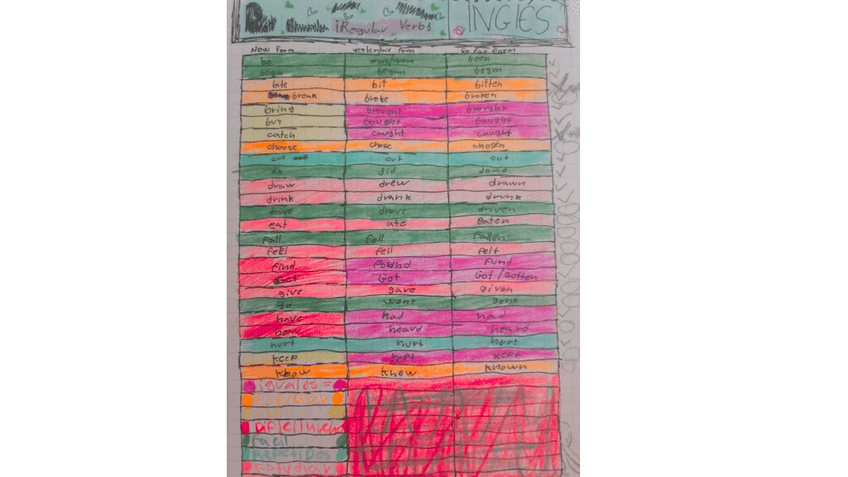 INGLES
iRegular Verbs
Now Form yesterday Form So Far Form
be was/were been
begin began begun
bite bit bitten
break broke broken
bring brought brought
buy bought bought
catch caught caught
choose chose chosen
cut cut cut
do did done
draw drew drawn
drink drank drunk
drive drove driven
eat ate eaten
fall fell fallen
feel fell felt
find found fund
Get Got Got/Gotten
give gave given
go went gone
have had had
hear heard heard
hurt hurt hurt
keep kept kept
know know known
iguales =
Dificil/Nuevo
Facil
Repetidos
Estudiar